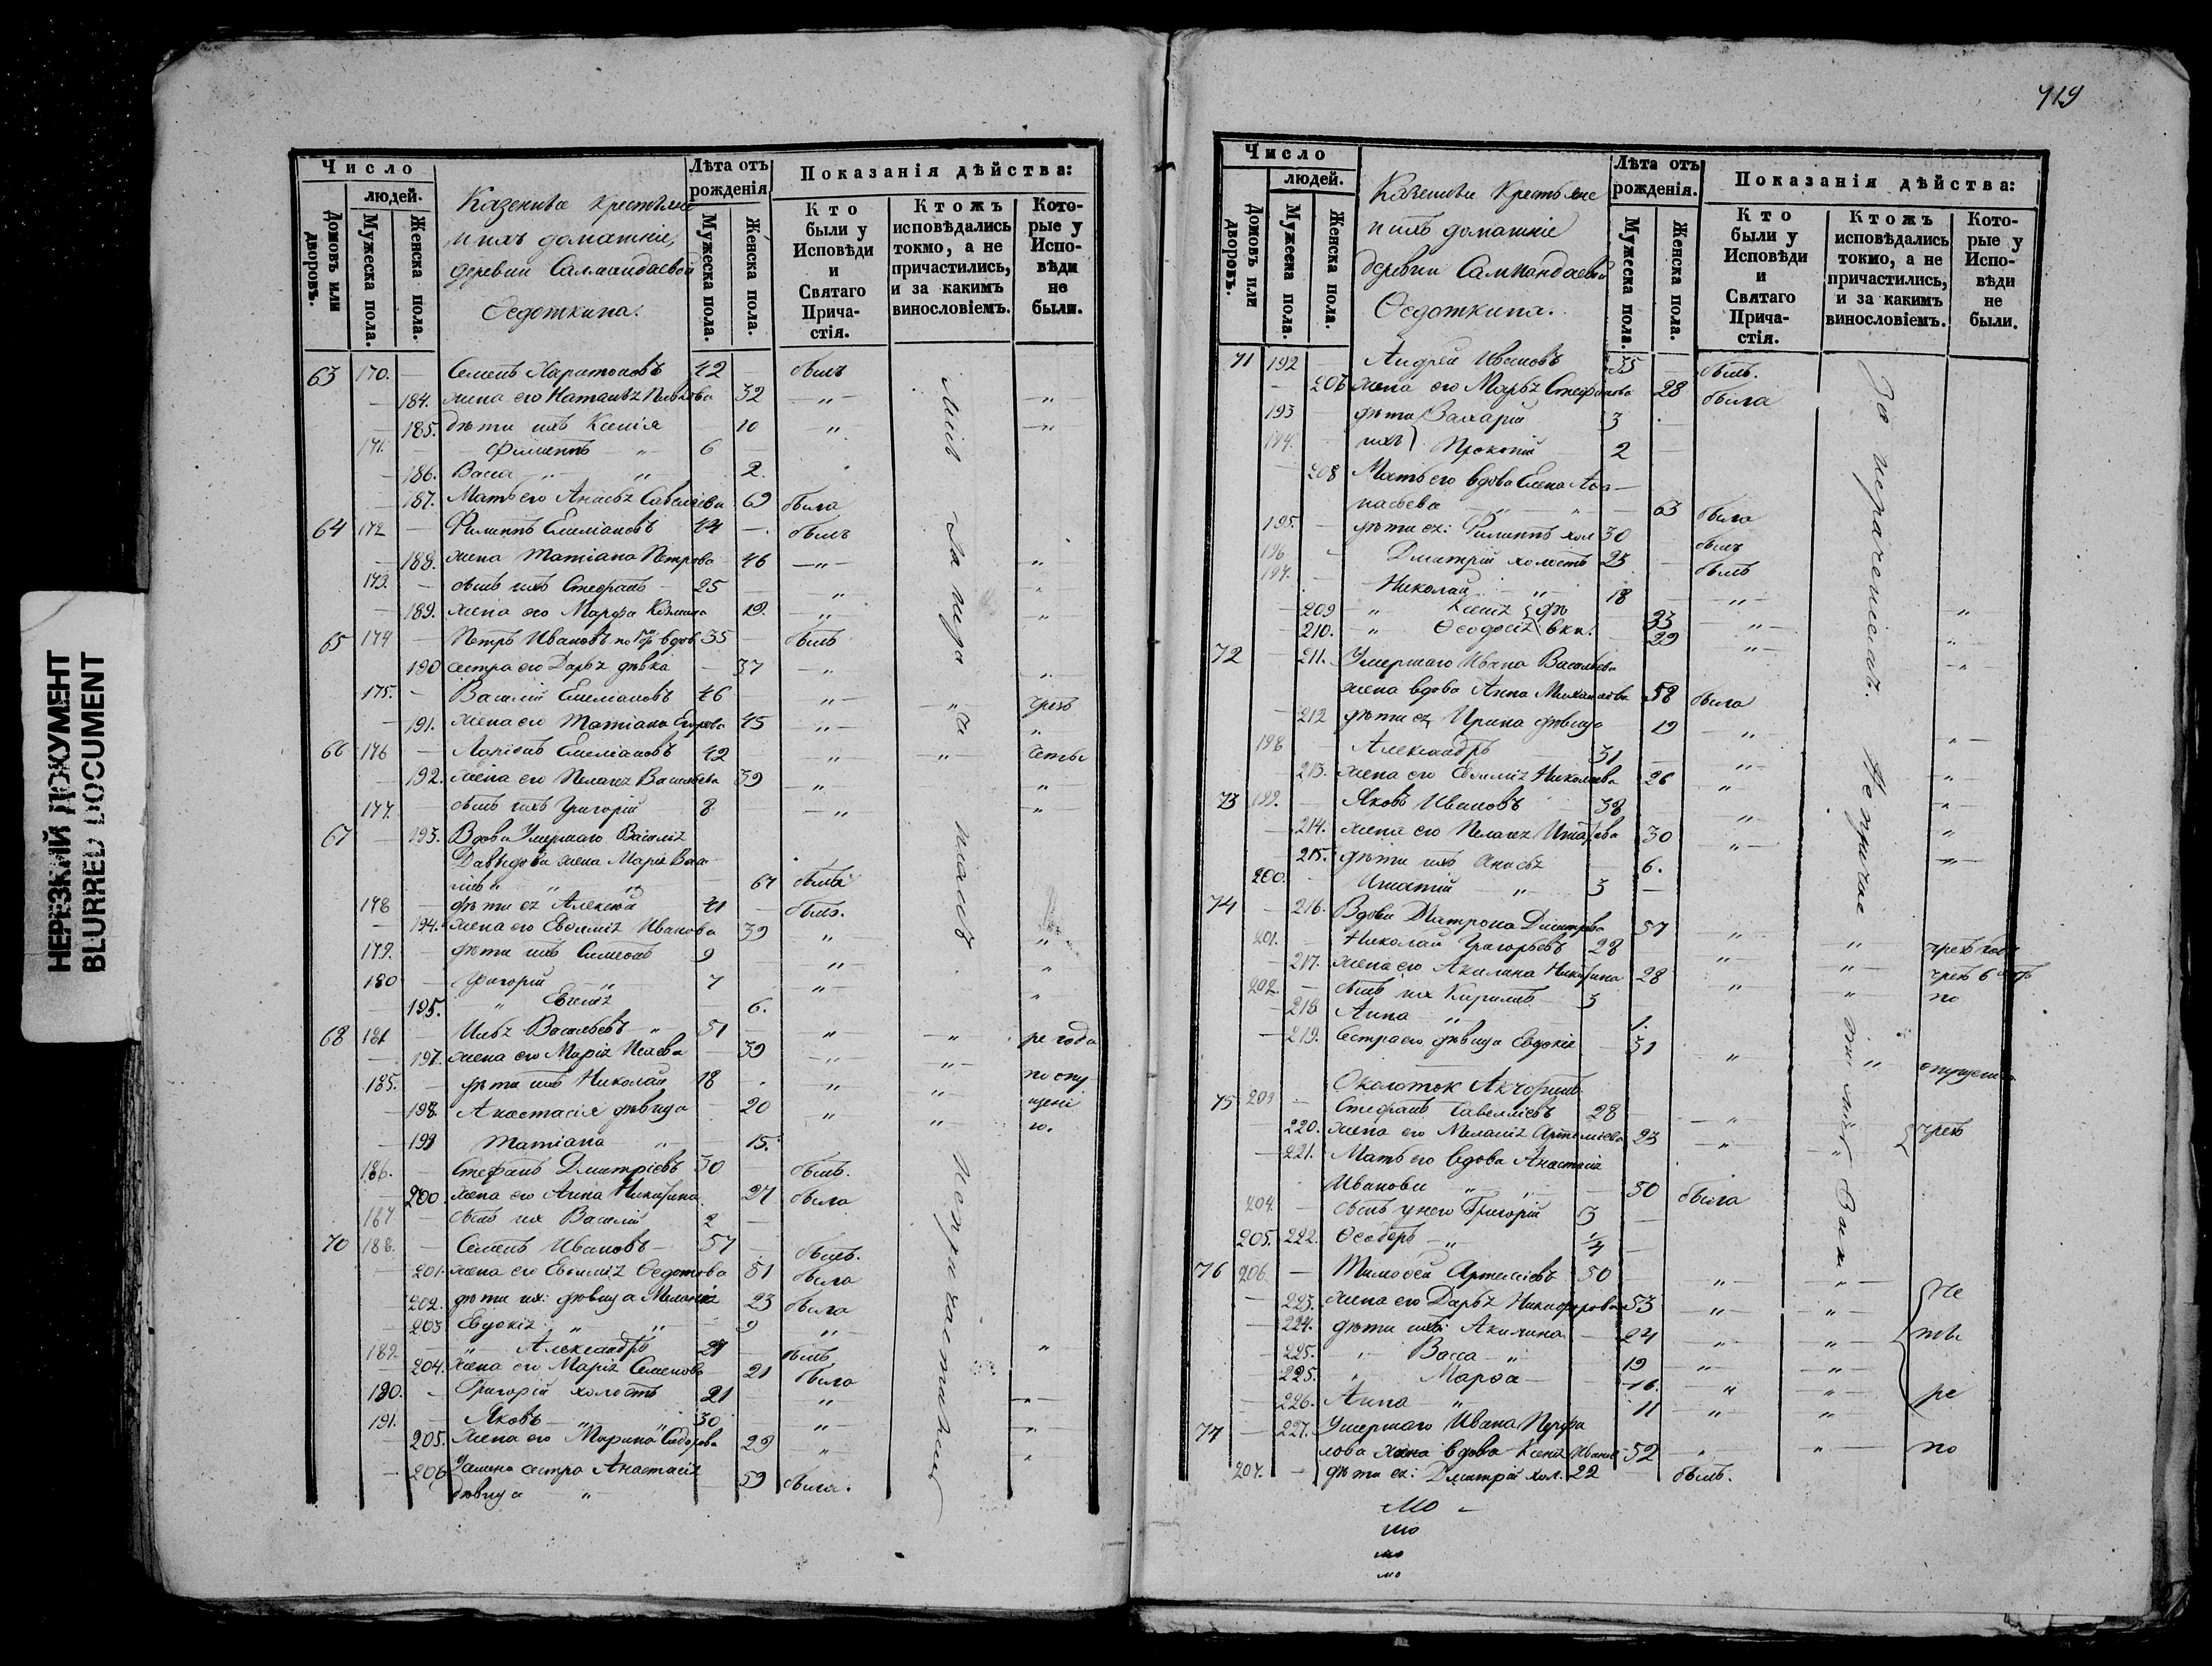 НЕРЕЗКИЙ ДОКУМЕНТ
BLURRED DOCUMENT
Число
людей.
Домовъ или дворовъ.
Мужеска пола.
Женска пола.
Казенные крестьяне
и ихъ домашніе,
деревни Салмандаевой
Ѳедоткина.
Лѣта отъ рожденія
Мужеска пола.
Женска пола.
Показанія дѣйства:
Кто были у Исповѣди и Святаго Прича-стія.
Ктожъ исповѣдались токмо, а не причастились, и за какимъ винословіемъ.
Кото-рые у Испо-вѣди не были.
63 170. — Семенъ Харитоновъ 42 — былъ
— 184. жена его Наталья 32 — „ — „
— 185. дѣти ихъ Ксенія 10 „ — „
171. — Филиппъ „ 6 —
— 186. Васса „ „ 2.
— 187. Мать его Анисья Савельева 69 была
64 172 — Филиппъ Емеліановъ 44 — былъ
— 188. жена Татіана Петрова 46 — „ — „
173. — сынъ ихъ Стефанъ 25 — „ „
— 189. жена его Марфа 19. — „ „
65 174 — Петръ Ивановъ вдов. 35 былъ
190 сестра его Дарья дѣвка — 37 — „ „
175. — Василій Емеліановъ 46 „ — „ чрезъ
— 191. жена его Татіана Егорова 45 — „ — „
66 176 — Ларіонъ Емеліановъ 42 „ „
— 192. жена его Пелагея Васильева 39 „ „
177. — сынъ ихъ Григорій 8 — „ „
67 — 193. Вдова Умершаго Василія
Давыдова жена Марія
„ „ 67 была
178 — дѣти ея Алексей 41 — былъ.
— 194. жена его Евфимія Иванова 39 „ „
179. — дѣти ихъ Симеонъ 9 „ — „
180 — Григорій „ 7 „ —
— 195. „ Евгенія 6. „
68 181 — Илья Васильевъ „ 51 — „ — „ — ре года
— 197. жена его Марія Исаева — 39 — „ — „ —
185. — дѣти ихъ Николай 18 „ „ — по опу
— 198. Анастасія дѣвица — 20 „ „ — щені
— 199 Татіана „ 15. „ — ю.
186. — Стефанъ Дмитріевъ 30 — былъ.
— 200. жена его Анна Никитина 27 была
187. — сынъ их Василій 2 —
70 188. — Семенъ Ивановъ — 57 былъ.
— 201. жена его Евфимія Ѳедотова 51 была
— 202. дѣти их: дѣвица Меланія 23 была
— 203 Евдокія „ „ 9 „ —
189. — „ Александръ 27 былъ „
— 204. жена его Марія Семенова 21 была
190. — Григорій холостъ 21 „ „
191. — Яковъ — „ „ 30 — „ „
— 205. жена его Марина Сидорова 29 — „ „
— 206 сестра Анастасія
дѣвица „ 59 была.
За нерачіемъ не причастились
719
Число
людей.
Домовъ или дворовъ.
Мужеска пола.
Женска пола.
Казенные Крестьяне
и ихъ домашніе
деревни Салмандаевой
Ѳедоткина.
Лѣта отъ рожденія.
Мужеска пола.
Женска пола.
Показанія дѣйства:
Кто были у Исповѣди и Святаго Прича-стія.
Ктожъ исповѣдались токмо, а не причастились, и за какимъ винословіемъ.
Кото-рые у Испо-вѣди не были.
71 192 — Андрей Ивановъ 35 — былъ.
— 207 жена его Марья Стефанова 28 была
193 дѣти Захарій 3
194. — ихъ Прокопій 2 —
— 208 Мать его вдова Елена Аѳа—
насьева — „ — 63 была
195. — дѣти ея: Филиппъ хол 30 былъ
196 — Дмитрій холостъ 25 былъ
197. — Николай „ 18 — „ —
— 209 „ Ксенія дѣ 33 — „ — „
— 210. — „ Ѳеодосія вки. 29 „ — „
72 — 211. Умершаго Ивана Васильева
жена вдова Анна Михайлова 58 была
— 212 дѣти ея Ирина дѣвица 19 „ „
198 — Александръ 31 „ —
— 213. жена его Евфимія Николаева 26 „ „
73 199. — Яковъ Ивановъ 38 „ „
— 214. жена его Пелагея 30 „ —
— 215. дѣти ихъ Анисья — 6.
200. — Игнатій „ 3 —
74 — 216. Вдова Матрона Дмитрева 57 „ —
201. — Николай Григорьевъ 28 „ — „
— 217. жена его Акилина Никитина 28 „ „
202. — сынъ их Кирилъ 3 „ по
— 218. Анна — „ 1.
— 219. Сестра его дѣвица Евдокія 31 „ „ опущенію
Околоток
75 203 — Стефанъ Савеліевъ 28 „
— 220. жена его Меланія Артеміева 23 „ чрезъ
— 221. Мать его вдова Анастасія
Иванова „ „ 50 была
204. — сынъ у него Григорій 3 —
205. 222. Ѳеодоръ — „ 1/4 —
76 206. — Тимоѳей Артеміевъ 50 „ — „ — Не
— 223. жена его Дарья Никифорова 53 „ „
— 224. дѣти ихъ: Акилина 24 „ „
— 225. „ Васса „ 19 — „ „
225. „ Марѳа — 16. — „ „
— 226. Анна — „ 11 — „ „
77 — 227. Умершаго Ивана
жена вдова Ксенія 52 „ — „ — по
207. — дѣти ея: Дмитрій хол. 22 — былъ.
За нерачіемъ. Не причас
мо —
мо
мо
мо